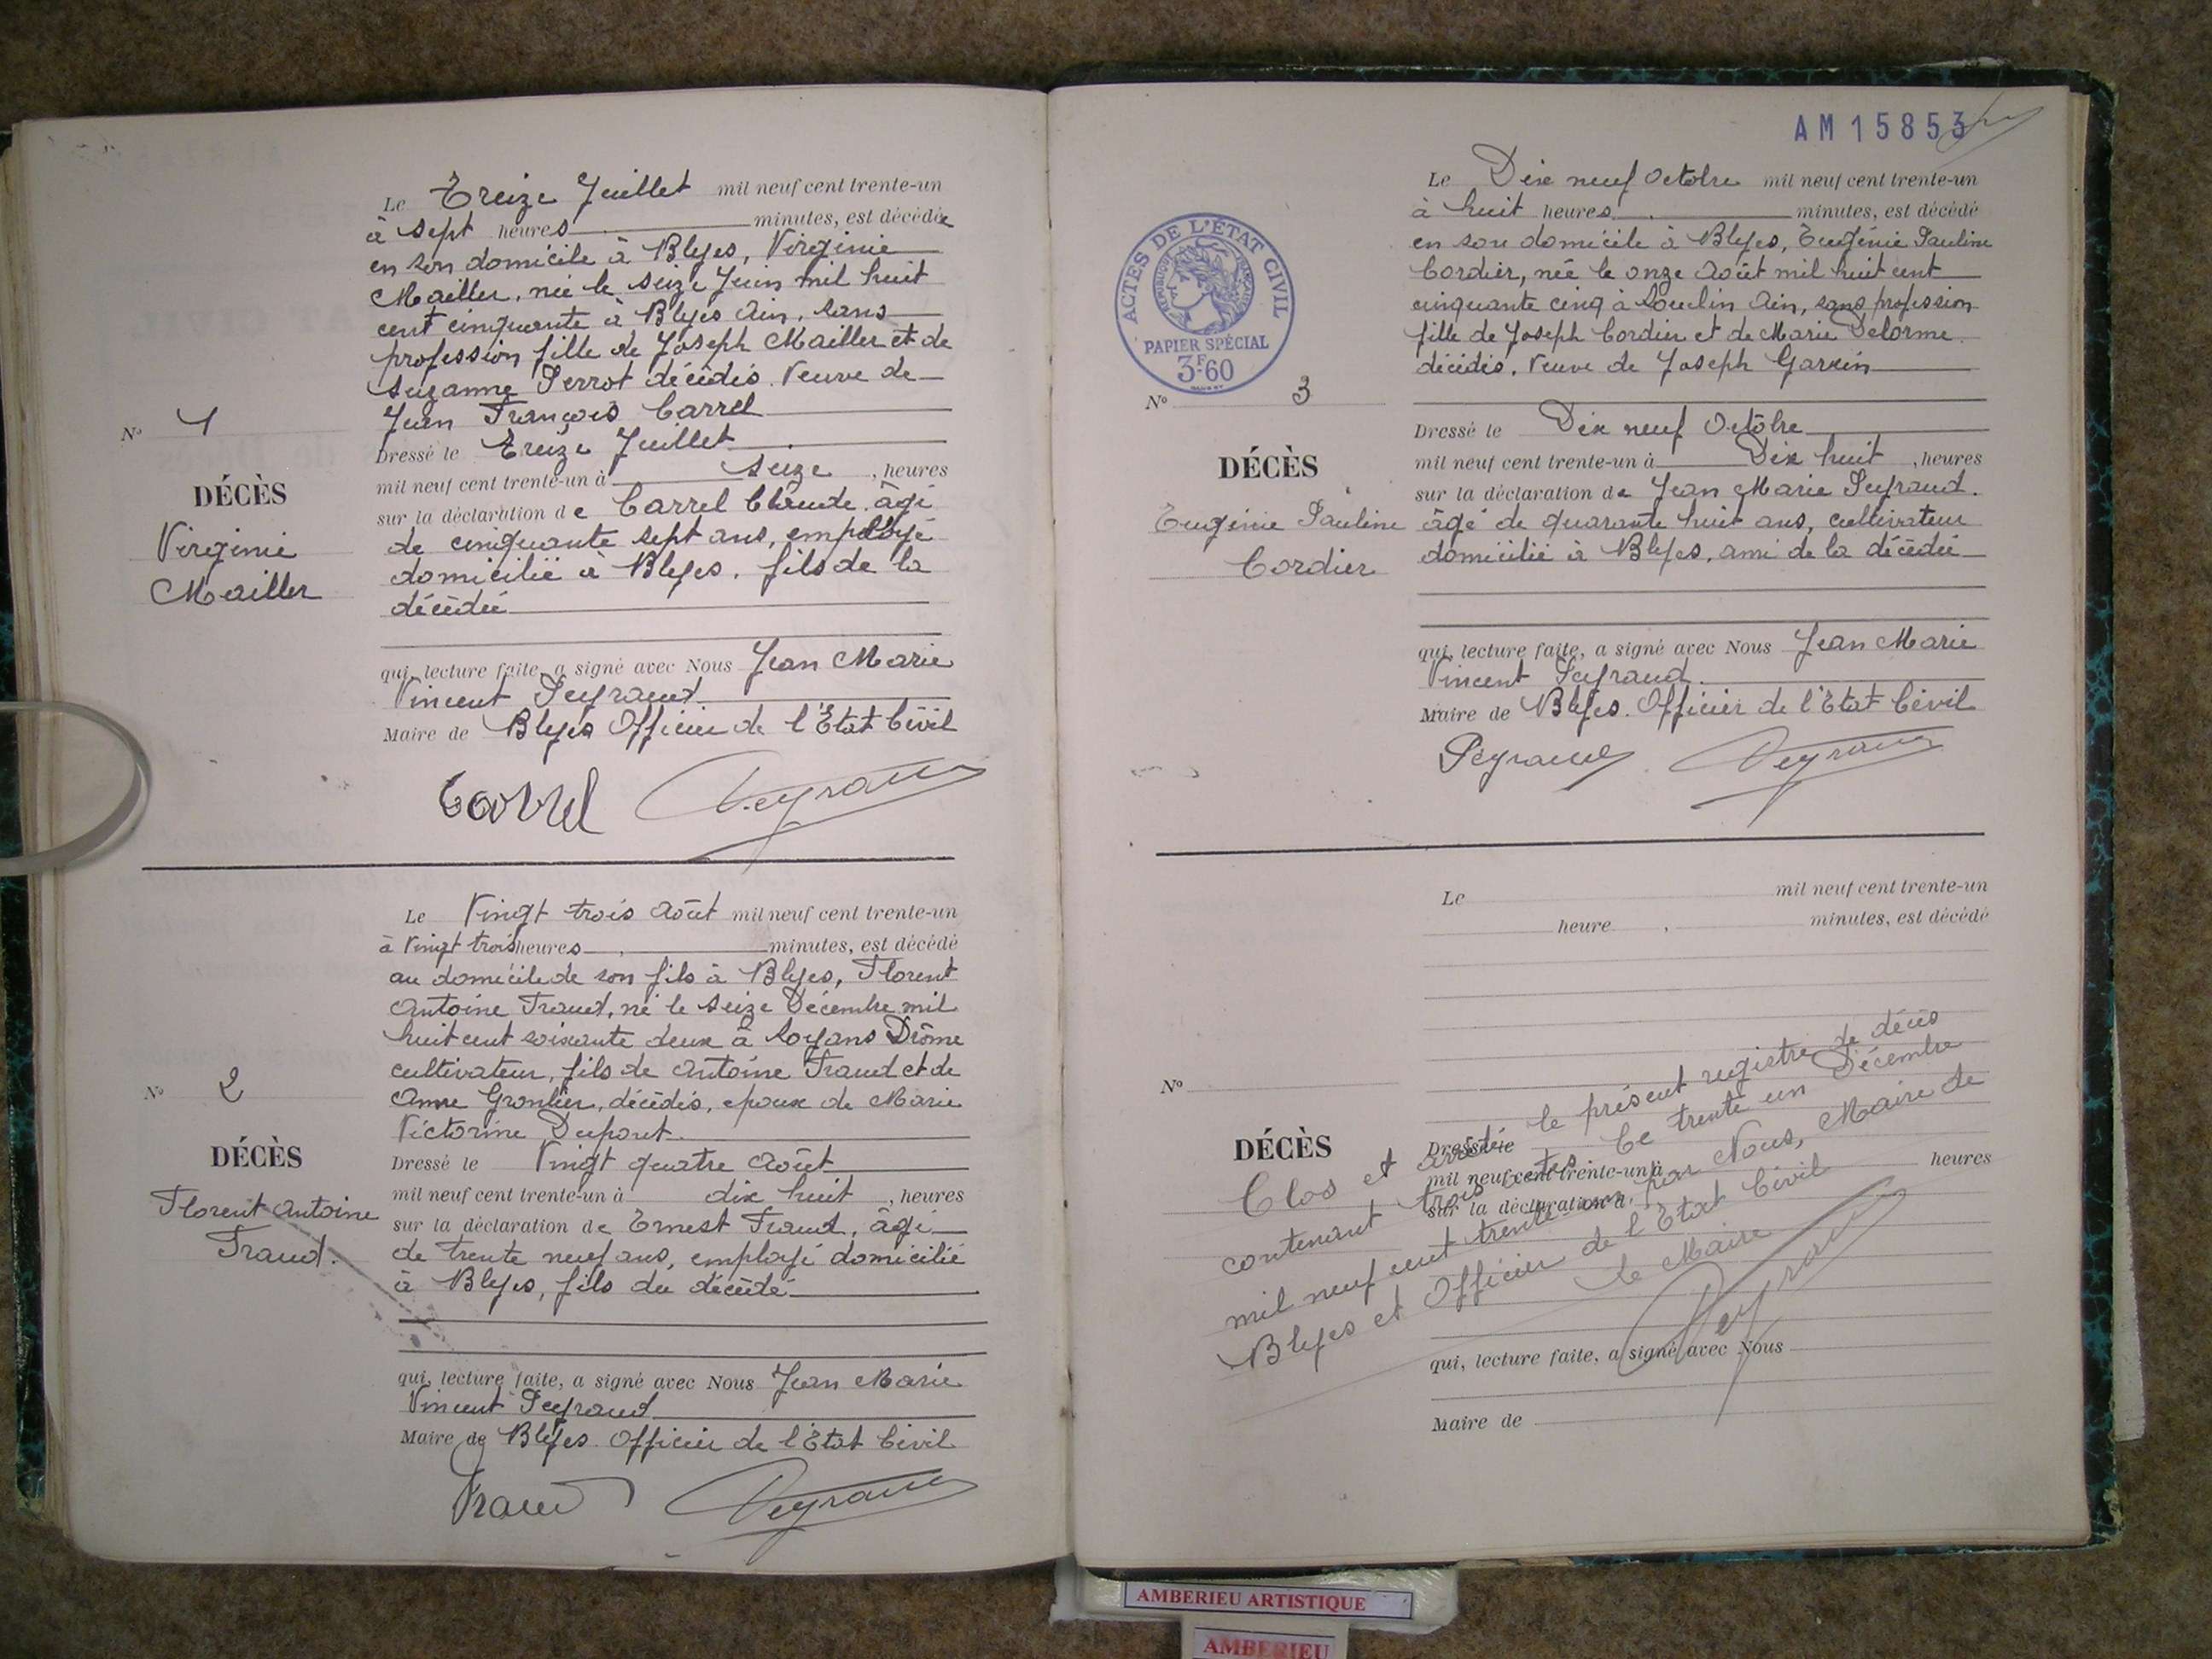 Le Treize Juillet mil neuf cent trente-un
à sept heures minutes, est décédée
en son domicile à Blyes, Virginie
Mailler, née le seize Juin mil huit
cent cinquante à Blyes Ain, sans
profession fille de Joseph Mailler et de
Suzanne Perrot décédés. Veuve de
Jean François Carrel
Dressé le Treize Juillet
mil neuf cent trente-un à seize, heures
sur la déclaration de Carrel Claude, âgé
de cinquante sept ans, employé
domicilié à Blyes, fils de la
décédée
qui, lecture faite, a signé avec Nous Jean Marie
Vincent Peyraud
Maire de Blyes Officier de l'Etat Civil
Carrel Peyraud
N° 1
DÉCÈS
Virginie
Mailler
Le Vingt trois Août mil neuf cent trente-un
à Vingt trois heures minutes, est décédé
au domicile de son fils à Blyes, Florent
Antoine Traud, né le seize Décembre mil
huit cent soixante deux à Royans Drôme
cultivateur, fils de Antoine Traud et de
Anne décédés, époux de Marie
Victorine Dupont
Dressé le Vingt quatre Août
mil neuf cent trente-un à dix huit, heures
sur la déclaration de Ernest Traud, âgé
de trente neuf ans, employé domicilié
à Blyes, fils du décédé
qui, lecture faite, a signé avec Nous Jean Marie
Vincent Peyraud
Maire de Blyes Officier de l'Etat Civil
Traud Peyraud
N° 2
DÉCÈS
Florent Antoine
Traud.
AM15853
ACTES DE L'ÉTAT CIVIL
RÉPUBLIQUE FRANÇAISE
PAPIER SPÉCIAL
3F60
Le Dix neuf Octobre mil neuf cent trente-un
à huit heures minutes, est décédé
en son domicile à Blyes, Eugénie Pauline
Cordier, née le onze Août mil huit cent
cinquante cinq à Ain, sans profession
fille de Joseph Cordier et de Marie Delorme
décédés. Veuve de Joseph
Dressé le Dix neuf Octobre
mil neuf cent trente-un à Dix huit, heures
sur la déclaration de Jean Marie Peyraud.
âgé de quarante huit ans, cultivateur
domicilié à Blyes, ami de la décédée
qui, lecture faite, a signé avec Nous Jean Marie
Vincent Peyraud
Maire de Blyes. Officier de l'Etat Civil
Peyraud Peyraud
N° 3
DÉCÈS
Eugénie Pauline
Cordier
Le mil neuf cent trente-un
heure, minutes, est décédé
N°
DÉCÈS
Dressé le
mil neuf cent trente-un à heures
sur la déclaration d
Clos et arrêté le présent registre de décès
contenant trois actes Ce trente un Décembre
mil neuf cent trente un, par Nous, Maire de
Blyes et Officier de l'Etat Civil
Le Maire
Peyraud
qui, lecture faite, a signé avec Nous
Maire de
AMBERIEU ARTISTIQUE
AMBERIEU